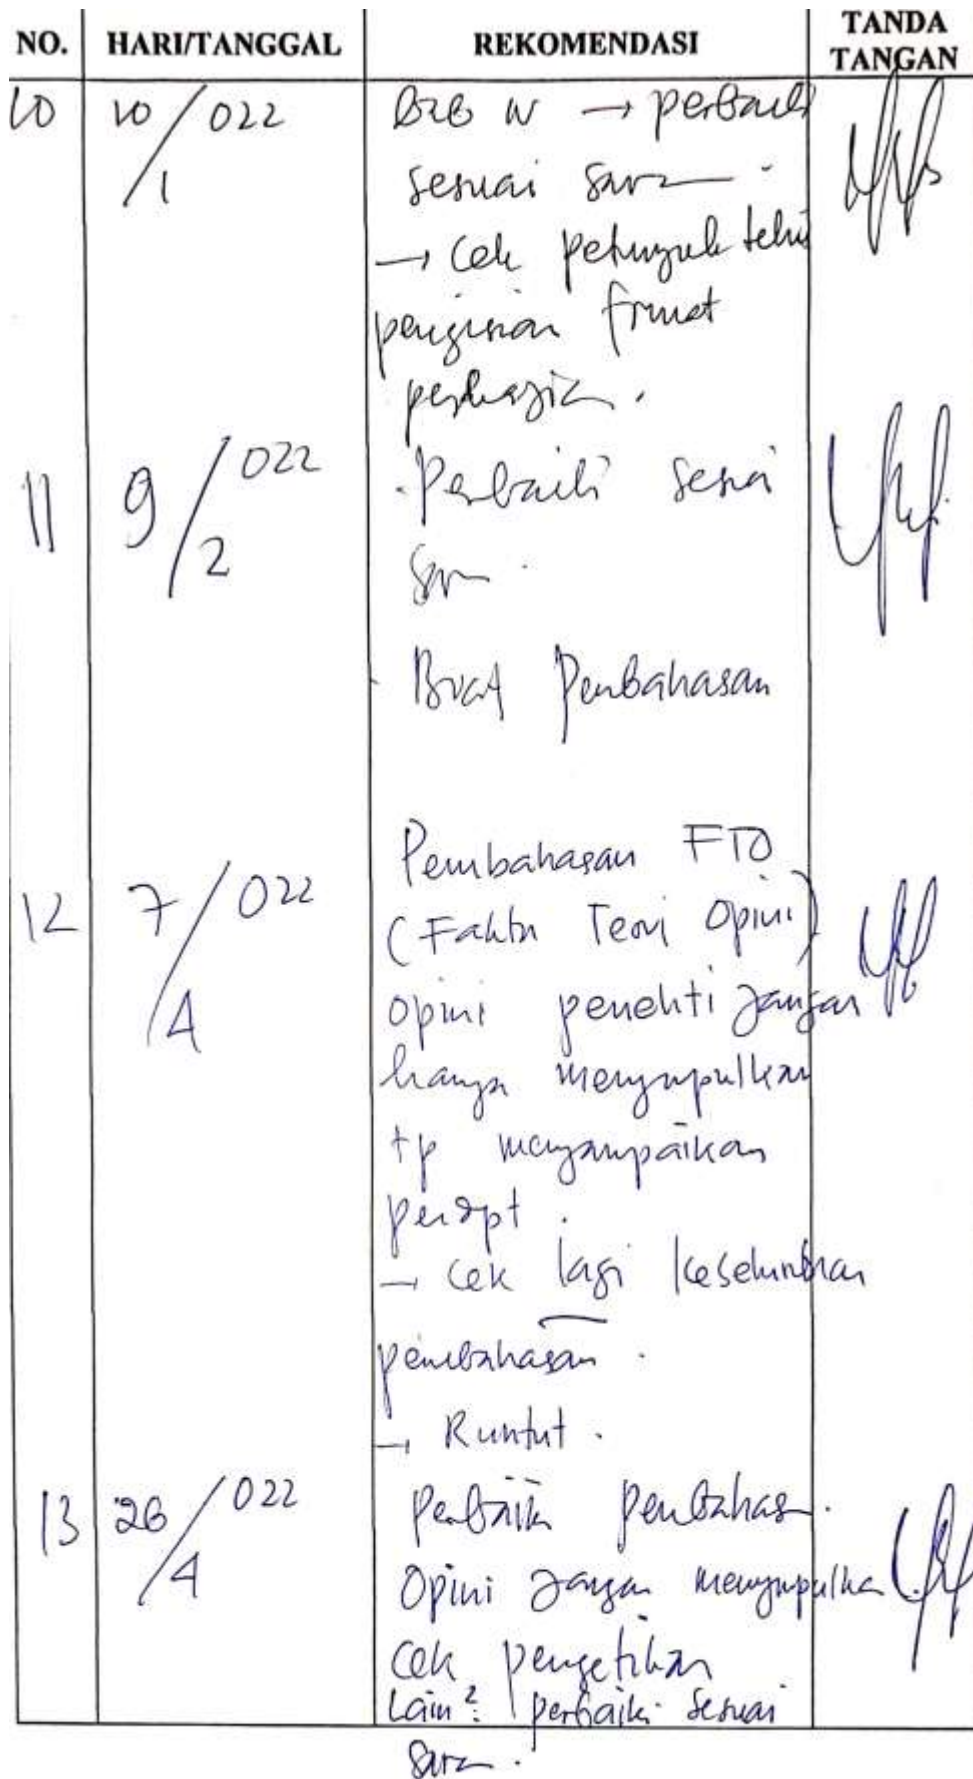 NO. HARI/TANGGAL REKOMENDASI TANDA TANGAN
10 10/1 022 Bab IV → perbaiki
sesuai saran.
→ Cek petunjuk teknis
pengisian format
pengkajian.
11 9/2 022 - Perbaiki sesuai
saran.
- Buat Pembahasan
Pembahasan FTO
12 7/4 022 (Fakta Teori Opini)
Opini peneliti jangan
hanya menyimpulkan
tp menyampaikan
pendpt.
→ Cek lagi
pembahasan.
→ Runtut.
13 26/4 022 Perbaiki pembahasan.
Opini jangan menyimpulkan
Cek pengetikan
Lain2: perbaiki sesuai
saran.